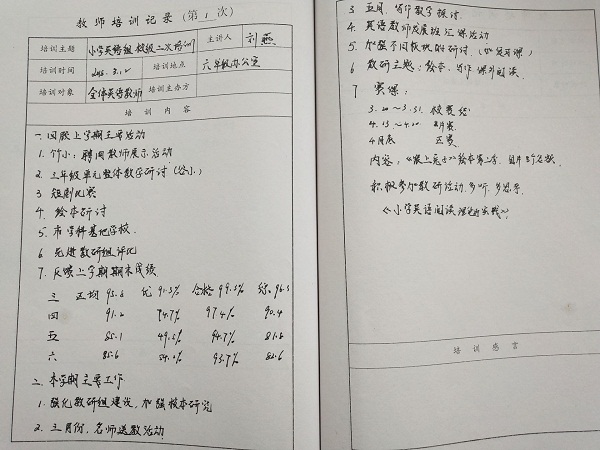 教师培训记录（第 1 次）
培训主题 小学英语组校级二次培训 主讲人 刘燕
培训时间 3.12 培训地点 六年级办公室
培训对象 全体英语教师 培训主办方
培训内容
一、回顾上学期主要活动
1. 竹小：聘回教师展示活动
2. 三年级单元整体教学研讨
3 短剧比赛
4. 绘本研讨
5. 市学科基地学校.
6 先进教研组评比
7. 反馈上学期期末成绩
三 均 优 91.5% 合格 99.5% 综. 96.5
四 91.2 74.7% 97.4% 90.4
五 85.1 94.7% 81.8
六 85.6 93.7%
二、本学期主要工作
1. 强化教研组建设，加强校本研究
2. 三月份，名师送教活动
3 五月，写作教学探讨.
4. 英语教师发展班汇课活动
5 加强不同板块的研讨.（如复习课）
6 教研主题：绘本、写作 课外阅读.
7 赛课：
3.20～3.31. 校赛
4.13.～4.20 片赛.
4月底 区赛.
内容：
积极参加教研活动.多听.多思考.
《小学英语阅读 理论与实践》
培训感言